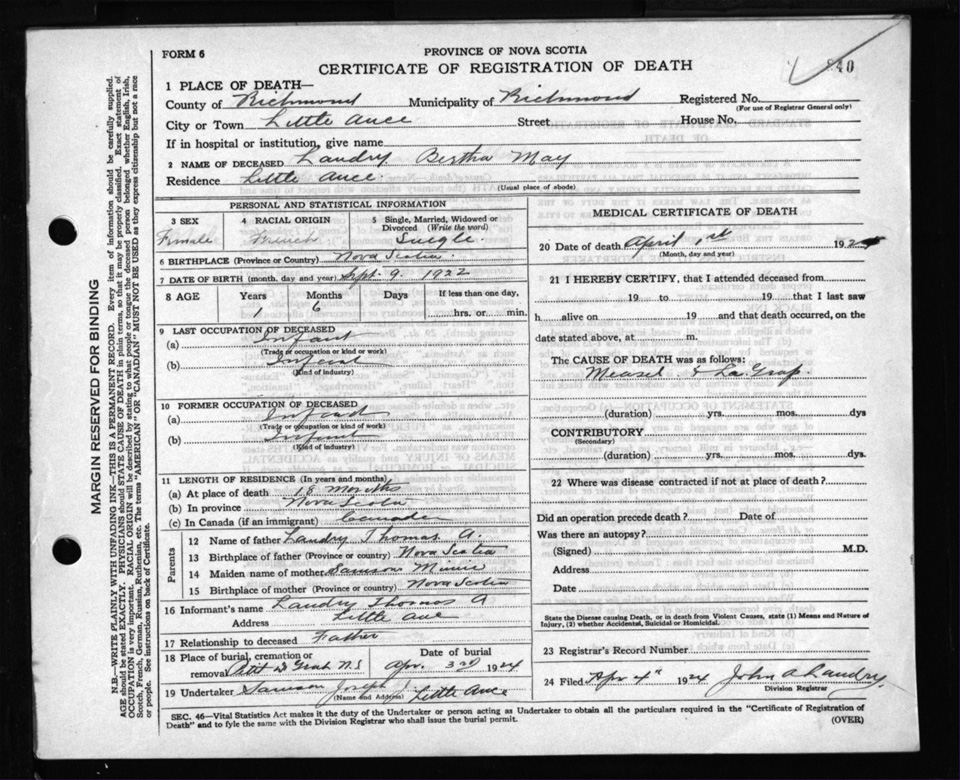 FORM 6
PROVINCE OF NOVA SCOTIA
CERTIFICATE OF REGISTRATION OF DEATH
40
1 PLACE OF DEATH—
County of Richmond Municipality of Richmond Registered No.
(For use of Registrar General only)
City or Town Little Ance Street House No.
If in hospital or institution, give name
2 NAME OF DECEASED Landry Bertha May
Residence Little Ance
(Usual place of abode)
PERSONAL AND STATISTICAL INFORMATION
3 SEX 4 RACIAL ORIGIN 5 Single, Married, Widowed or Divorced (Write the word)
Female French Suegle
6 BIRTHPLACE (Province or Country) Nova Scotia
7 DATE OF BIRTH (month, day and year) Sept. 9, 1922
8 AGE Years Months Days If less than one day,
1 6 hrs. or min.
9 LAST OCCUPATION OF DECEASED
(a) Infant
(Trade or occupation or kind or work)
(b) Infant
(Kind of industry)
10 FORMER OCCUPATION OF DECEASED
(a) Infant
(Trade or occupation or kind or work)
(b) Infant
(Kind of industry)
11 LENGTH OF RESIDENCE (In years and months)
(a) At place of death 18 months
(b) In province Nova Scotia
(c) In Canada (if an immigrant) Canada
Parents
12 Name of father Landry Thomas A.
13 Birthplace of father (Province or country) Nova Scotia
14 Maiden name of mother Samson Minie
15 Birthplace of mother (Province or country) Nova Scotia
16 Informant's name Landry Thomas A
Address Little Ance
17 Relationship to deceased Father
18 Place of burial, cremation or removal Petit de Grat N.S Date of burial Apr. 3rd 1924
19 Undertaker Samson Joseph J Little Ance
(Name and Address)
MEDICAL CERTIFICATE OF DEATH
20 Date of death April 1st 192
(Month, day and year)
21 I HEREBY CERTIFY, that I attended deceased from
19 to 19 that I last saw
h alive on 19 and that death occurred, on
date stated above, at m.
The CAUSE OF DEATH was as follows:
Measel & La Grap.
(duration) yrs. mos. dys
CONTRIBUTORY
(Secondary)
(duration) yrs. mos. dys.
22 Where was disease contracted if not at place of death?
Did an operation precede death? Date of
Was there an autopsy?
(Signed) M.D.
Address
Date
State the Disease causing Death, or in death from Violent Causes, state (1) Means and Nature of
Injury, (2) whether Accidental, Suicidal or Homicidal.
23 Registrar's Record Number
24 Filed Apr 4th 1924 John A Landry
Division Registrar
SEC. 46—Vital Statistics Act makes it the duty of the Undertaker or person acting as Undertaker to obtain all the particulars required in the "Certificate of Registration of
Death" and to fyle the same with the Division Registrar who shall issue the burial permit.
(OVER)
MARGIN RESERVED FOR BINDING
N.B.—WRITE PLAINLY WITH UNFADING INK—THIS IS A PERMANENT RECORD. Every item of information should be carefully supplied.
AGE should be stated EXACTLY. PHYSICIANS should STATE CAUSE OF DEATH in plain terms, so that it may be properly classified. Exact statement of
OCCUPATION is very important. RACIAL ORIGIN will be described by stating to what people or tongue the deceased person belonged whether English, Irish,
Scotch, French, German, Russian, Ruthenian, etc. The terms "AMERICAN" OR "CANADIAN" MUST NOT BE USED as they express citizenship but not a race
or people. See instructions on back of Certificate.